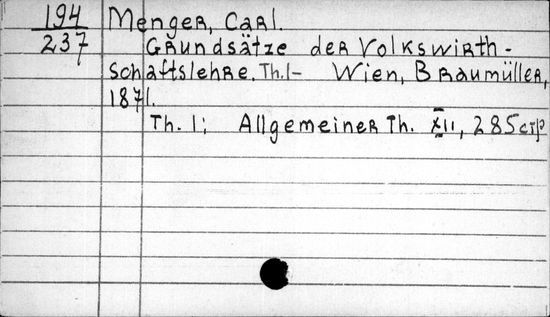 194 Menger, Carl.
237 Grundsätze der Volkswirth-
schaftslehre. Th. I- Wien, Braumüller,
1871.
Th. I: Allgemeiner Th. XII, 285 стр